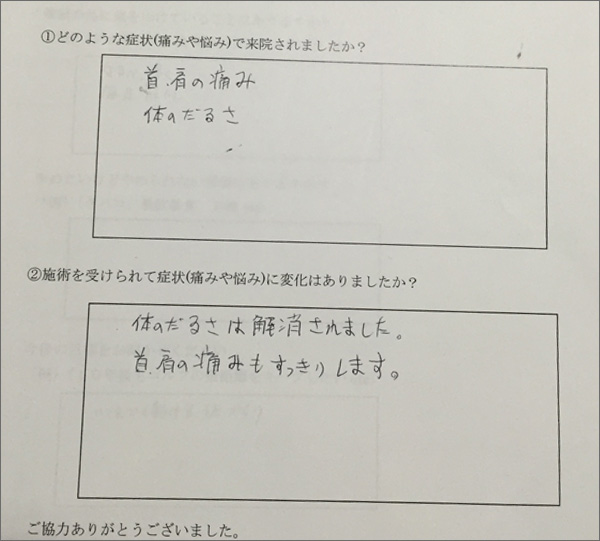 ①どのような症状(痛みや悩み)で来院されましたか?
首.肩の痛み
体のだるさ
②施術を受けられて症状(痛みや悩み)に変化はありましたか?
体のだるさは解消されました。
首.肩の痛みもすっきりします。
ご協力ありがとうございました。